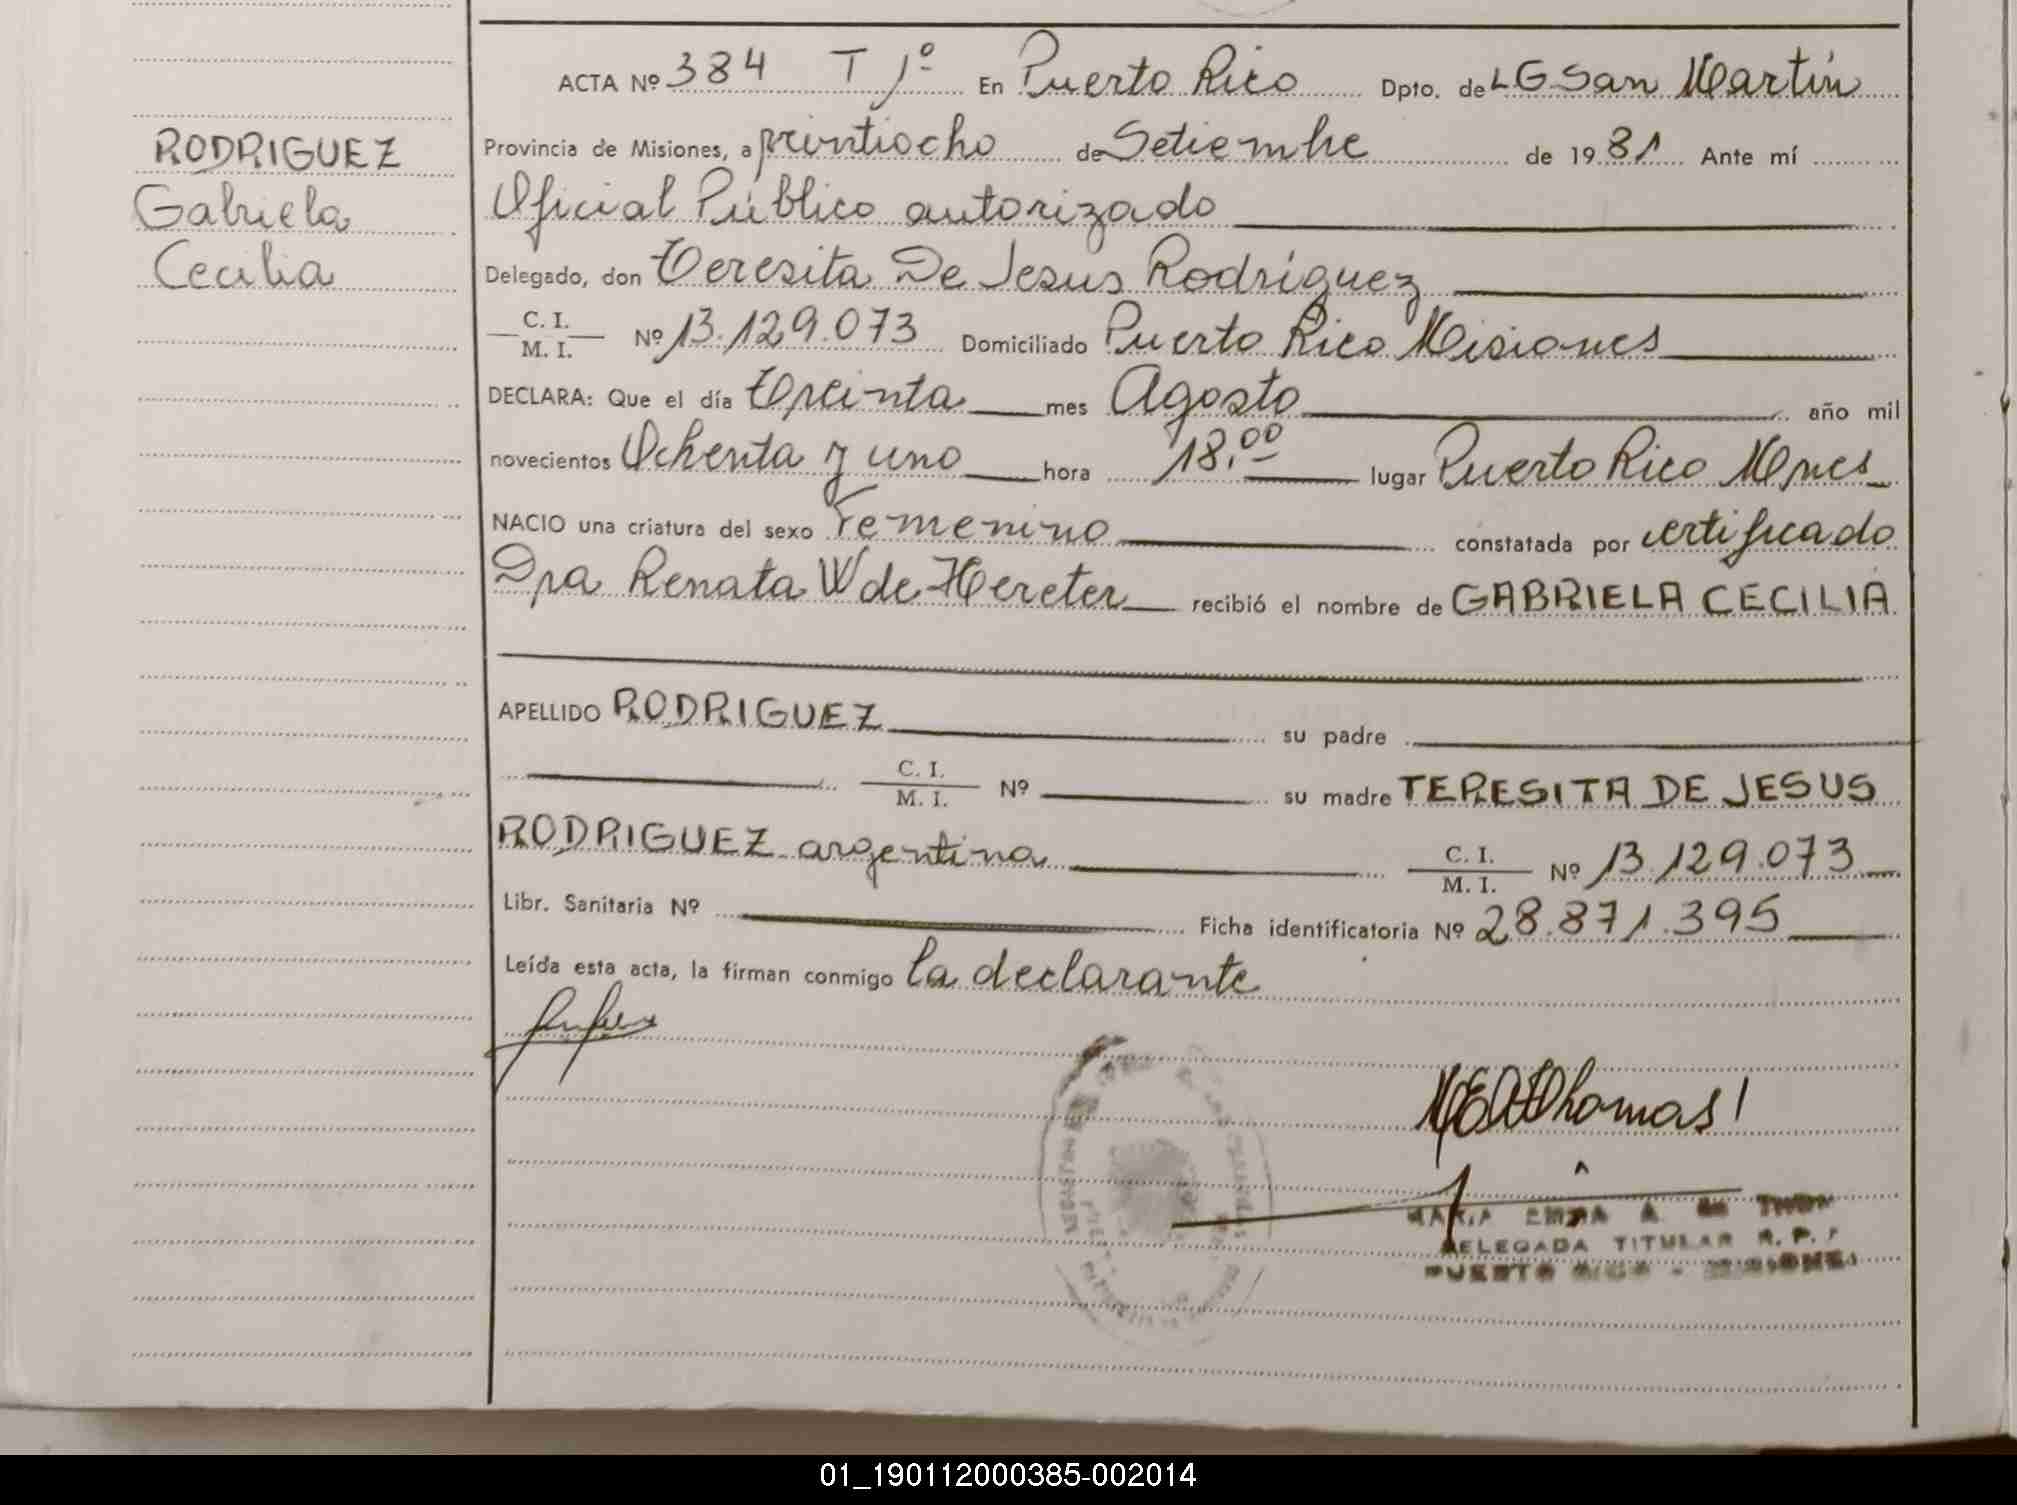 ACTA Nº 384 T 1º En Puerto Rico Dpto. de L G San Martín
RODRIGUEZ
Provincia de Misiones, a de Setiembre de 1981 Ante mí
Gabriela
Oficial Público autorizado
Cecilia
Delegado, don Teresita De Jesus Rodríguez
C. I.
M. I. Nº 13.129.073 Domiciliado Puerto Rico Misiones
DECLARA: Que el día Treinta mes Agosto año mil
novecientos Ochenta y uno hora 18,00 lugar Puerto Rico Mnes
NACIO una criatura del sexo Femenino constatada por certificado
Dra Renata W de Hereter recibió el nombre de GABRIELA CECILIA
APELLIDO RODRIGUEZ su padre
C. I.
M. I. Nº su madre TERESITA DE JESUS
RODRIGUEZ argentina C. I.
M. I. Nº 13.129.073
Libr. Sanitaria Nº Ficha identificatoria Nº 28.871.395
Leída esta acta, la firman conmigo la declarante
MARIA EMMA A. de
DELEGADA TITULAR R. P.
PUERTO RICO - MISIONES
01_190112000385-002014